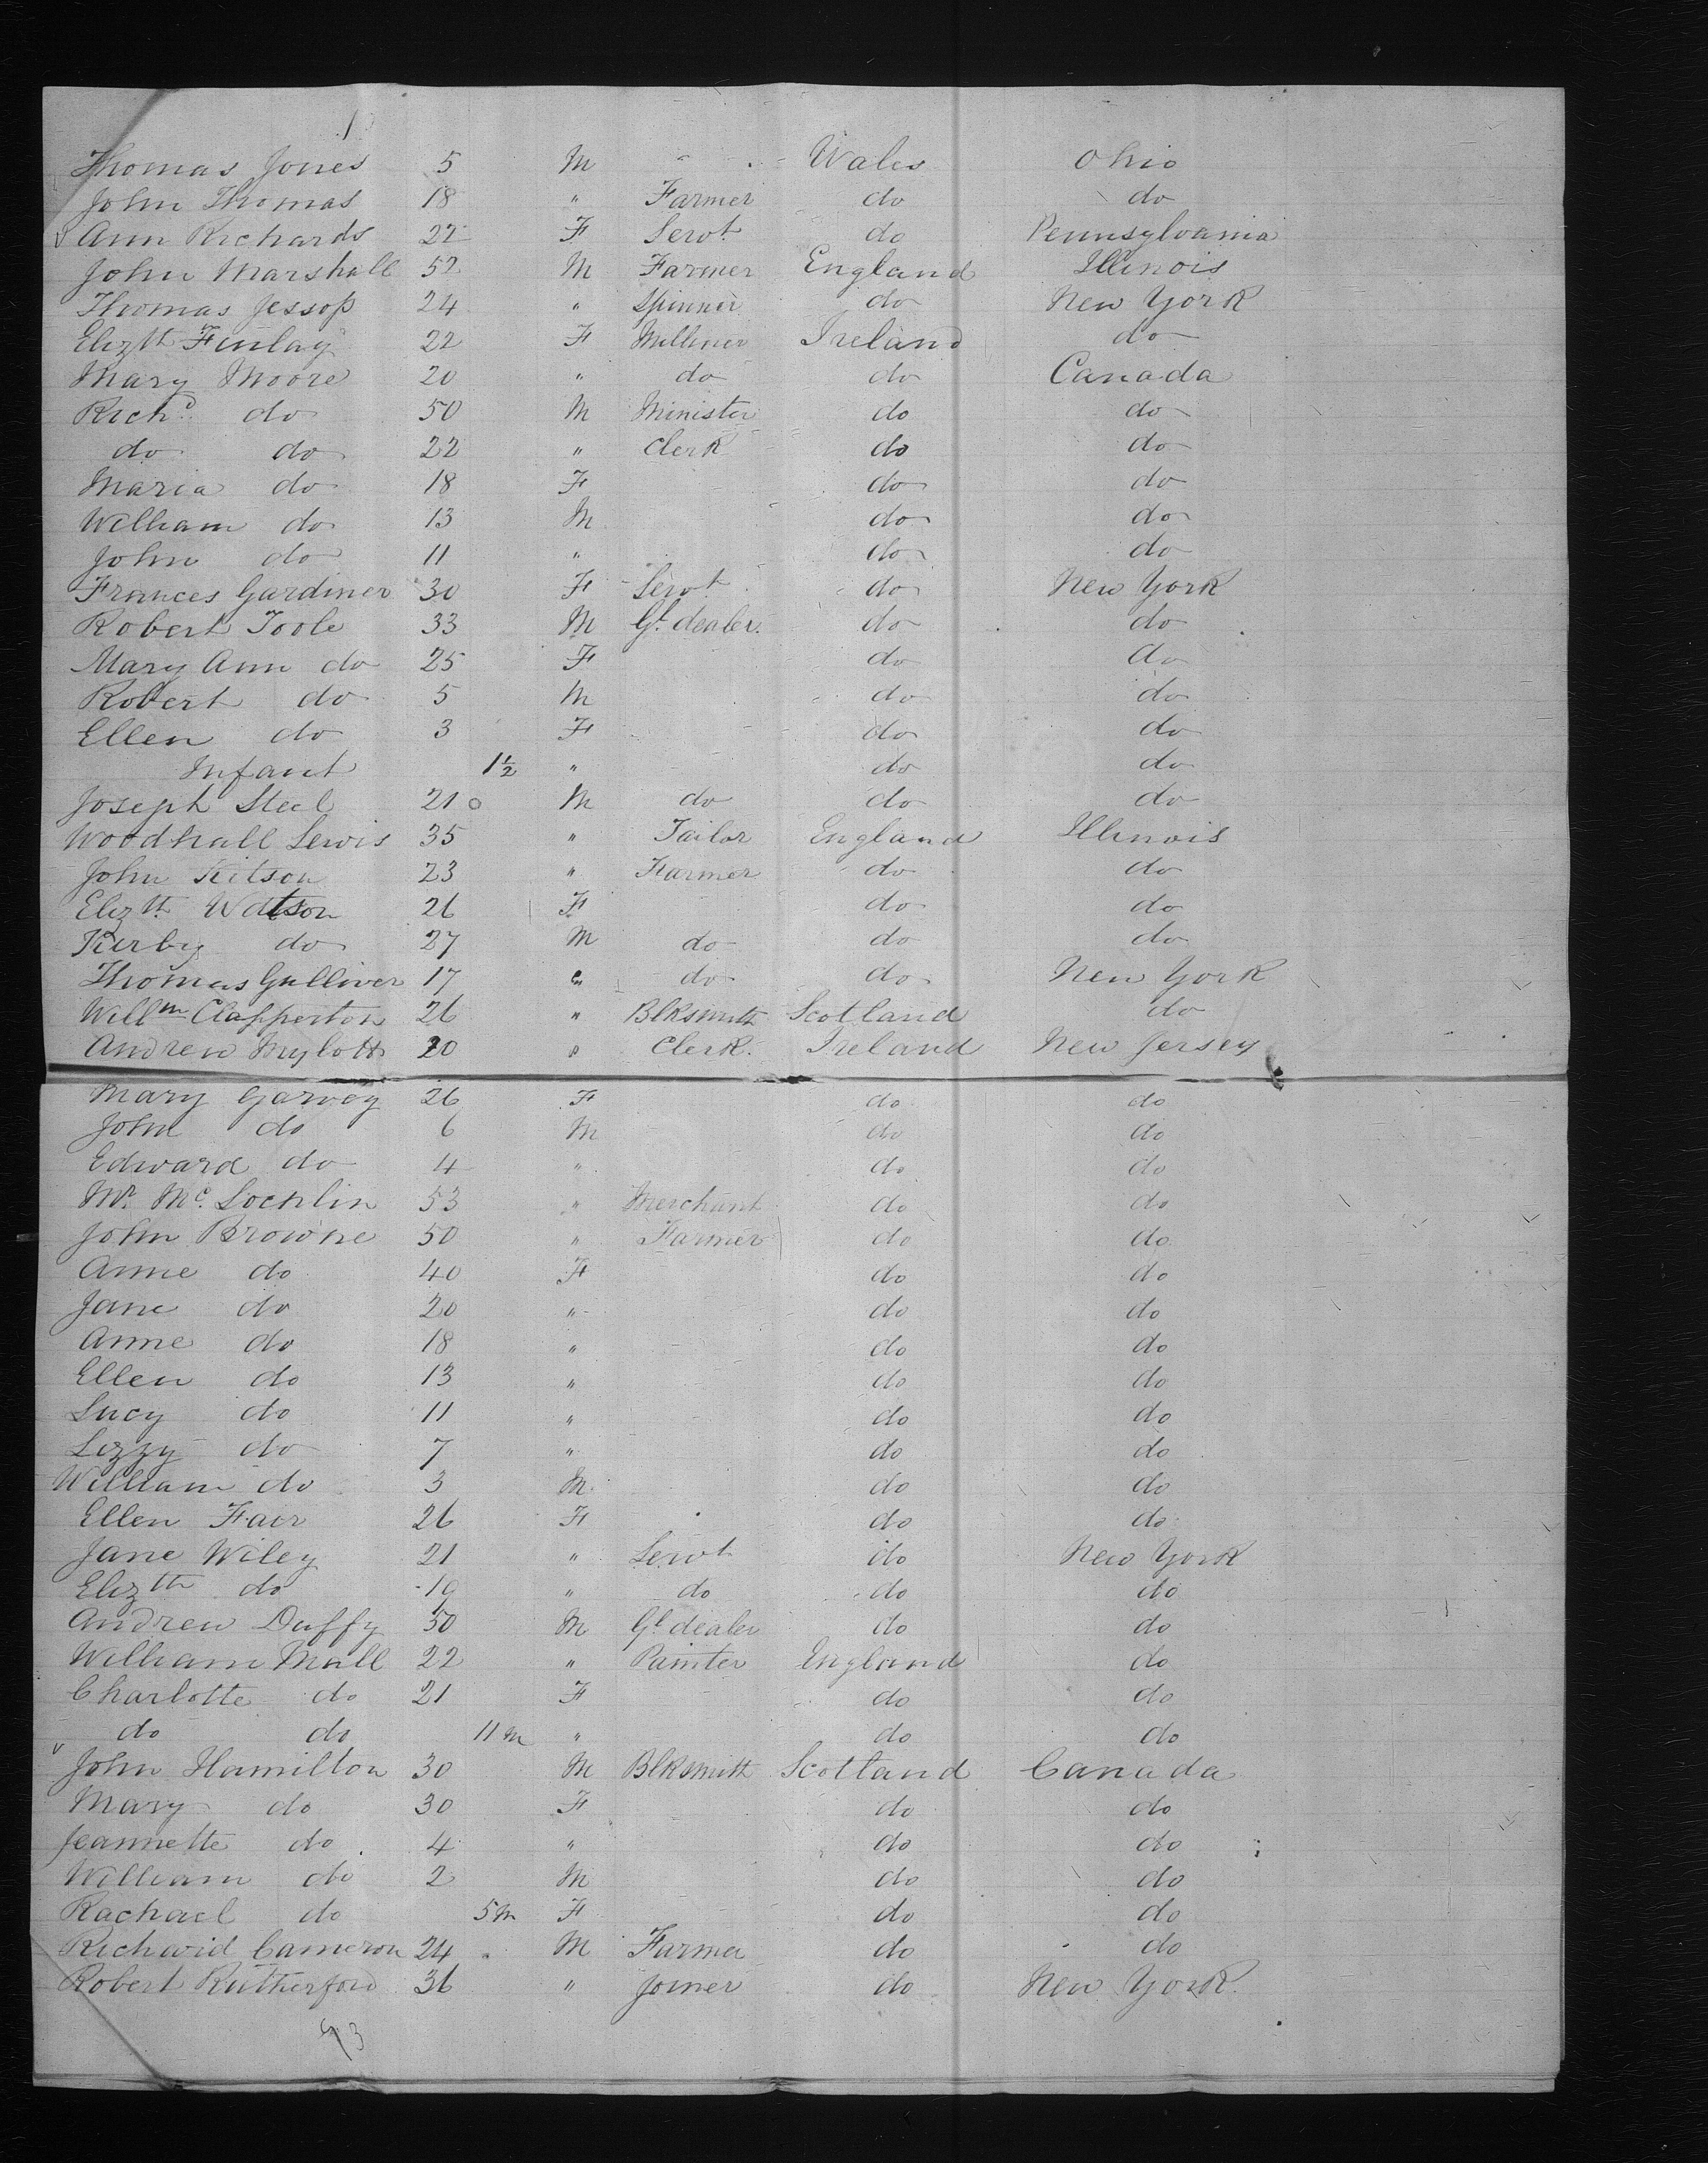 1
Thomas Jones 5 M " " Wales Ohio
John Thomas 18 " Farmer do do
Ann Richards 22 F Servt do Pennsylvania
John Marshall 52 M Farmer England Illinois
Thomas Jessop 24 " Spinner do New York
Elizth Finlay 22 F Milliner Ireland do
Mary Moore 20 " do do Canada
Richd do 50 M Minister do do
do do 22 " Clerk do do
Maria do 18 F do do
William do 13 M do do
John do 11 " do do
Frances Gardiner 30 F Servt do New York
Robert Toole 33 M Gl dealer do do
Mary Ann do 25 F do do
Robert do 5 M do do
Ellen do 3 F do do
Infant 1½ " do do
Joseph Steel 21 M do do do
Woodhall Lewis 35 " Tailor England Illinois
John Kitson 23 " Farmer do do
Elizth Watson 26 F do do
Kirby do 27 M do do do
Thomas Gulliver 17 " do do New York
Willm Clapperton 26 " Blksmith Scotland do
Andrew Mylott 20 " Clerk Ireland New Jersey
Mary Garvey 26 F do do
John do 6 M do do
Edward do 4 " do do
Mr. Mc. Lochlin 53 " Merchant do do
John Browne 50 " Farmer do do
Anne do 40 F do do
Jane do 20 " do do
Anne do 18 " do do
Ellen do 13 " do do
Lucy do 11 " do do
Lizzy do 7 " do do
William do 3 M do do
Ellen Fair 26 F do do
Jane Wiley 21 " Servt do New York
Elizth do 19 " do do do
Andrew Duffy 50 M Gl dealer do do
William Mall 22 " Painter England do
Charlotte do 21 F do do
do do 11 m " do do
John Hamilton 30 M Blksmith Scotland Canada
Mary do 30 F do do
Jeannette do 4 " do do
William do 2 M do do
Rachael do 5 m F do do
Richard Cameron 24 M Farmer do do
Robert Rutherford 36 " Joiner do New York